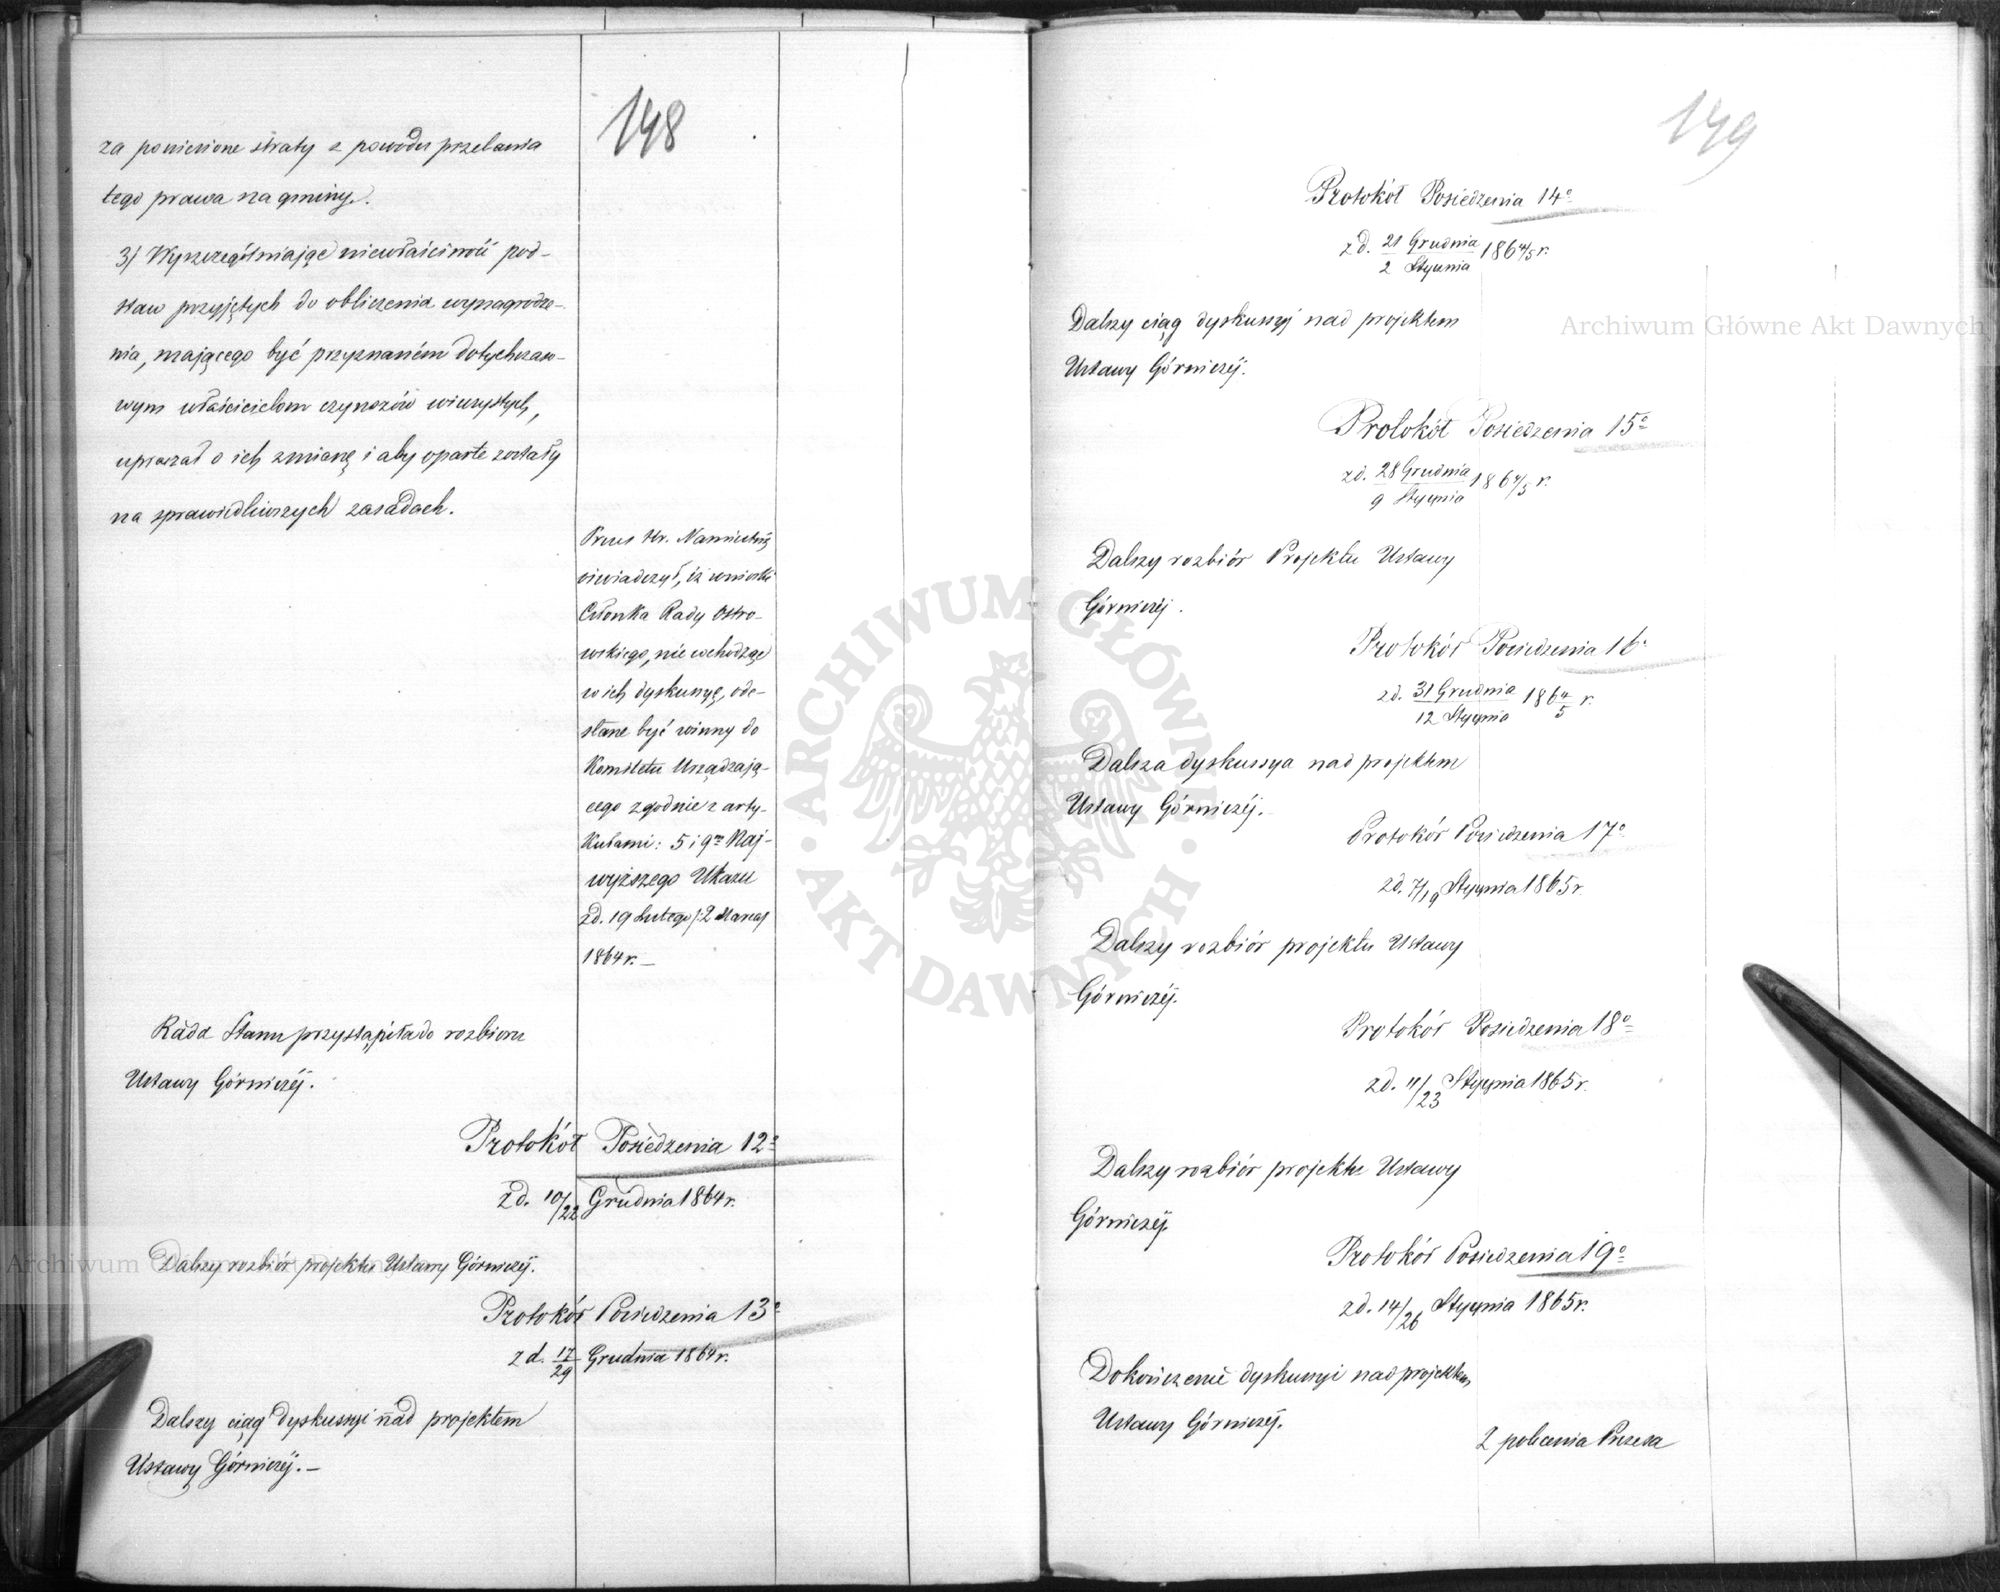 148
za poniesione straty z powodu przelania
tego prawa na gminy.
3/ Wyszczególniając niewłaściwość pod-
staw przyjętych do obliczenia wynagrodze-
nia, mającego być przyznaném dotychczaso-
wym właścicielom czynszów wieczystych,
upraszał o ich zmianę i aby oparte zostały
na sprawiedliwszych zasadach.
Prezes Hr. Namiestnik
oświadczył, iż wnioski
Członka Rady Ostro-
wskiego, nie wchodząc
w ich dyskusyę, ode-
słane być winny do
Komitetu Urządzają-
cego zgodnie z arty-
kułami: 5 i 9m Naj-
wyższego Ukazu
z d. 19 Lutego /: 2 Marca/
1864 r. —
Rada Stanu przystąpiła do rozbioru
Ustawy Górniczéj.
Protokół Posiedzenia 12o
z d. 10/22 Grudnia 1864 r.
Dalszy rozbiór projektu Ustawy Górniczéj.
Protokół Posiedzenia 13o
z d. 17/29 Grudnia 1864 r.
Dalszy ciąg dyskussyi nad projektem
Ustawy Górniczéj. —
149
Protokół Posiedzenia 14o
z d. 21 Grudnia/2 Stycznia 1864/5 r.
Dalszy ciąg dyskussyj nad projektem
Ustawy Górniczéj.
Protokół Posiedzenia 15o
z d. 28 Grudnia/9 Stycznia 1864/5 r.
Dalszy rozbiór Projektu Ustawy
Górniczéj.
Protokół Posiedzenia 16o
z d. 31 Grudnia/12 Stycznia 1864/5 r.
Dalsza dyskussya nad projektem
Ustawy Górniczéj.
Protokół Posiedzenia 17o
z d. 7/19 Stycznia 1865 r.
Dalszy rozbiór projektu Ustawy
Górniczéj.
Protokół Posiedzenia 18o
z d. 11/23 Stycznia 1865 r.
Dalszy rozbiór projektu Ustawy
Górniczéj.
Protokół Posiedzenia 19o
z d. 14/26 Stycznia 1865 r.
Dokończenie dyskussyi nad projektem
Ustawy Górniczéj.
Z polecenia Prezesa
Archiwum Główne Akt Dawnych
Archiwum Główne Akt Dawnych
ARCHIWUM GŁÓWNE · AKT DAWNYCH ·